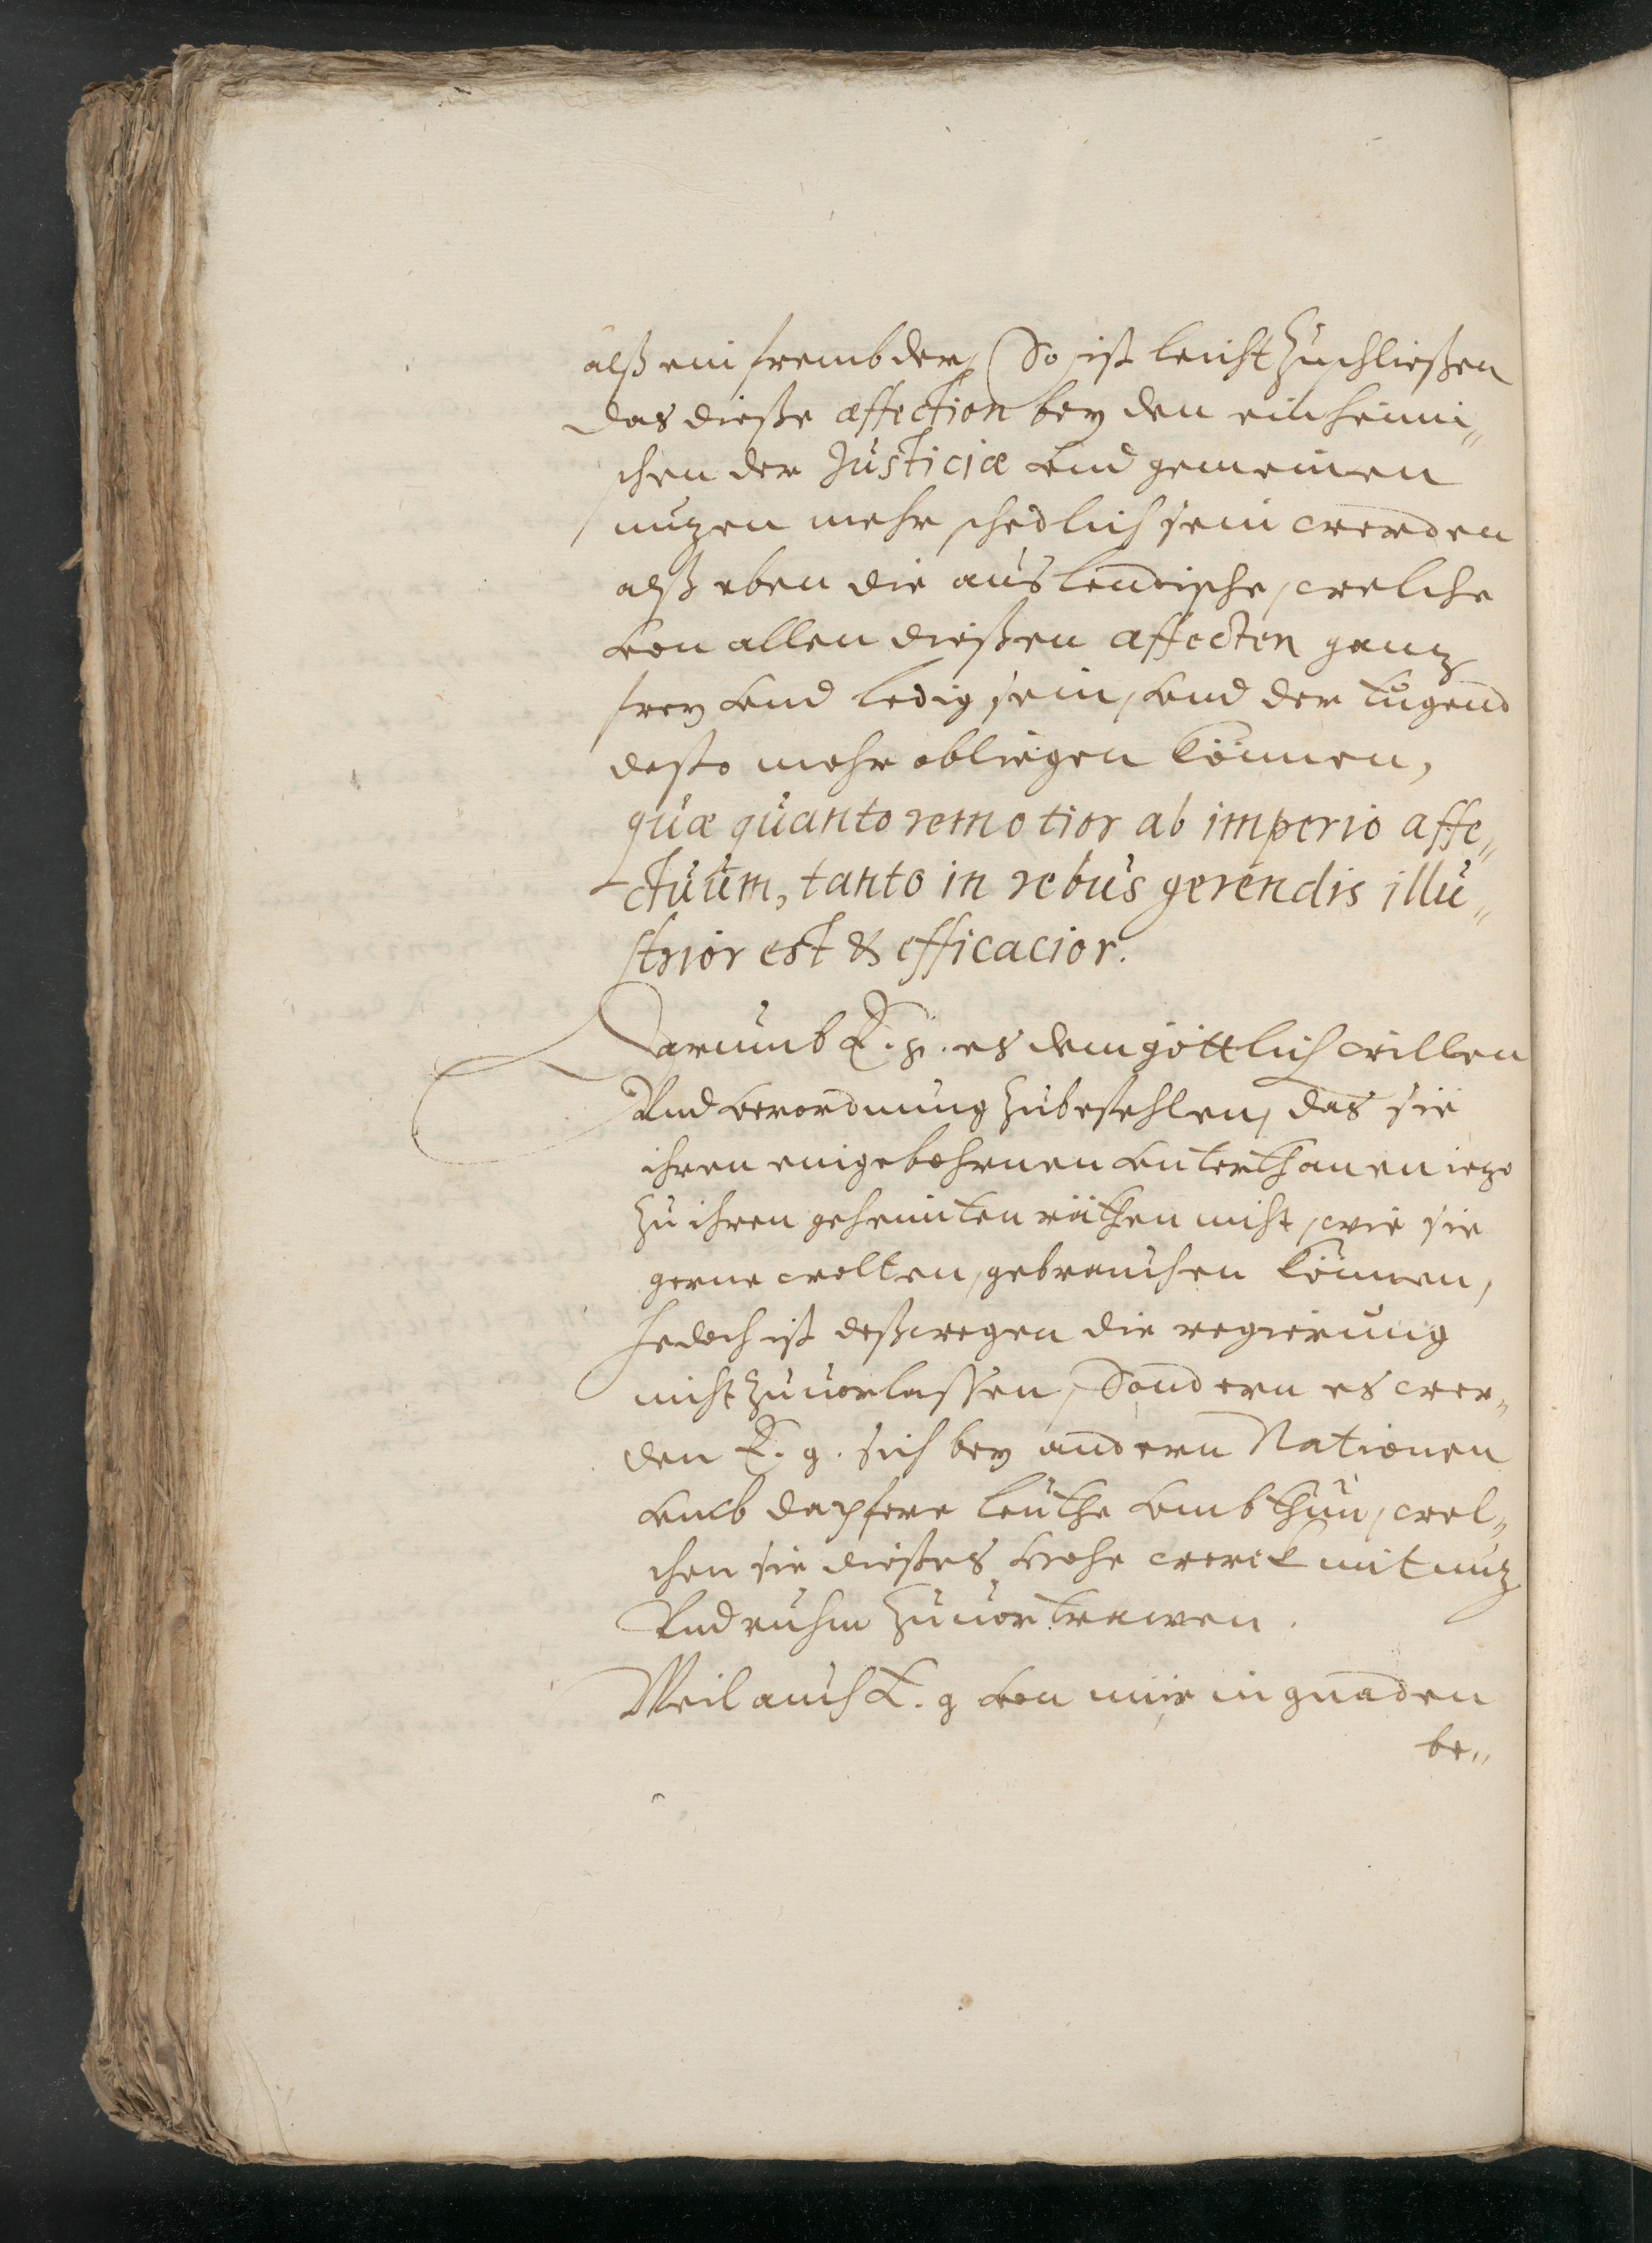 alß ein frembder, So ist leicht zuschließen
das dieße affection bey den einheimi„
schen der Justiciæ vnd gemeinen
nuzen mehr schedlich sein werden
alß eben die auslendische, welche
von allen dießen affecten ganz
frey vnd ledig sein, vnd der tugend
desto mehr obliegen können,
quæ quanto remotior ab imperio affe„
ctuum, tanto in rebus gerendis illu„
strior est & efficacior.
Darumb E. g. es dem göttlich willen
Vnd verordnung zubefehlen, das sie
ihren eingebohrnen vnterthanen iezo
zu ihren geheimten räthen nicht, wie sie
gerne wolten, gebrauchen können,
Jedoch ist deßwegen die regierung
nicht zuuorlassen, Sondern es wer„
den E. g. sich bey andern Nationen
vmb dapfere leuthe vmbthun, wel„
chen sie dießes hohe werck mit nuz
Vnd ruhm zuuortrawen.
Weil auch E. g von mir in gnaden
be„